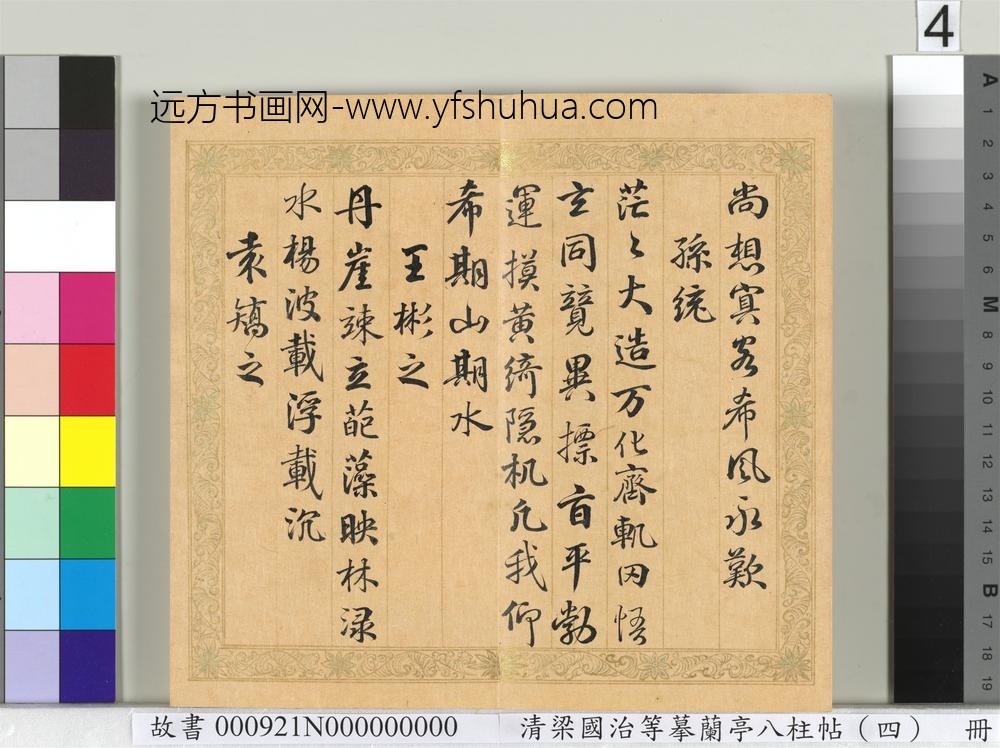 远方书画网-www.yfshuhua.com
4
尚想冥客希風永歎
孫統
茫〻大造万化齊軌罔悟
玄同競異摽旨平勃
運摸黃綺隐机凡我仰
希期山期水
王彬之
丹崖竦立葩藻映林渌
水楊波載浮載沉
袁矯之
A
1
2
3
4
5
6
M
8
9
10
11
12
13
14
15
B
17
18
19
故書 000921N000000000 清梁國治等摹蘭亭八柱帖（四） 冊